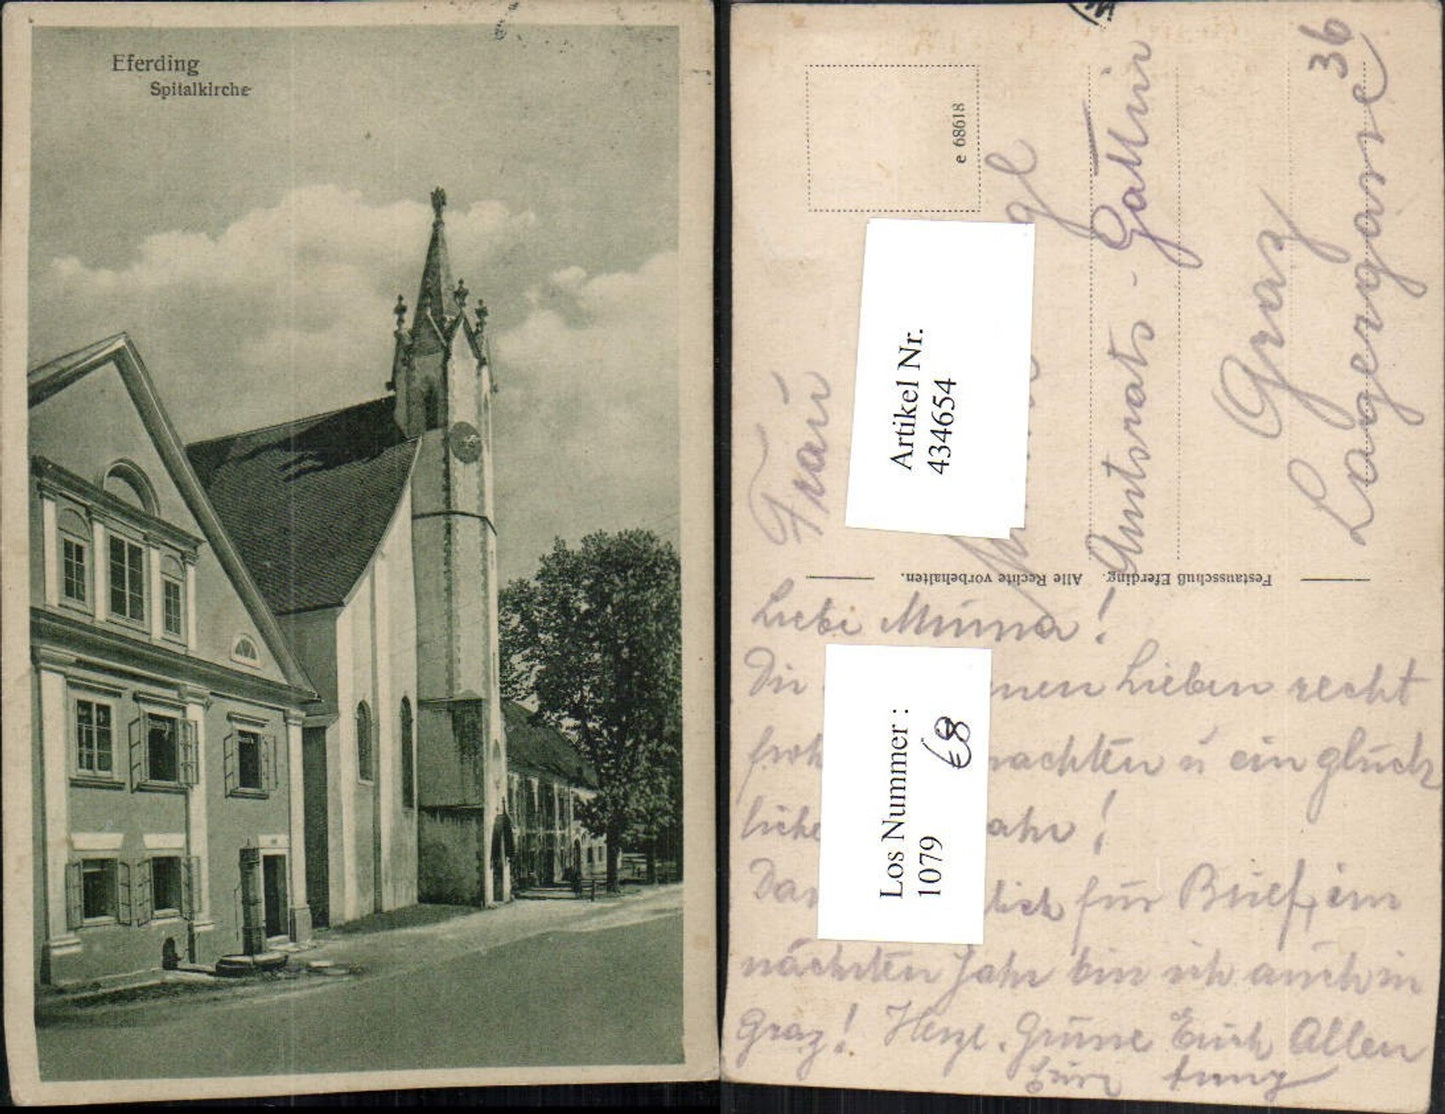 Eferding
Spitalkirche
e 68618
Frau
Amtsrats-Gattin
Graz
Lagergasse
36
Artikel Nr.
434654
Festausschuß Eferding. Alle Rechte vorbehalten.
Liebe Mima!
Dir nen Lieben recht
froh nachten u ein glück
liche ahr!
Dan lich für Brief, im
nächsten Jahr bin ich auch in
Graz! Herzl. Grüsse Euch Allen
Eure
Los Nummer :
1079
€8